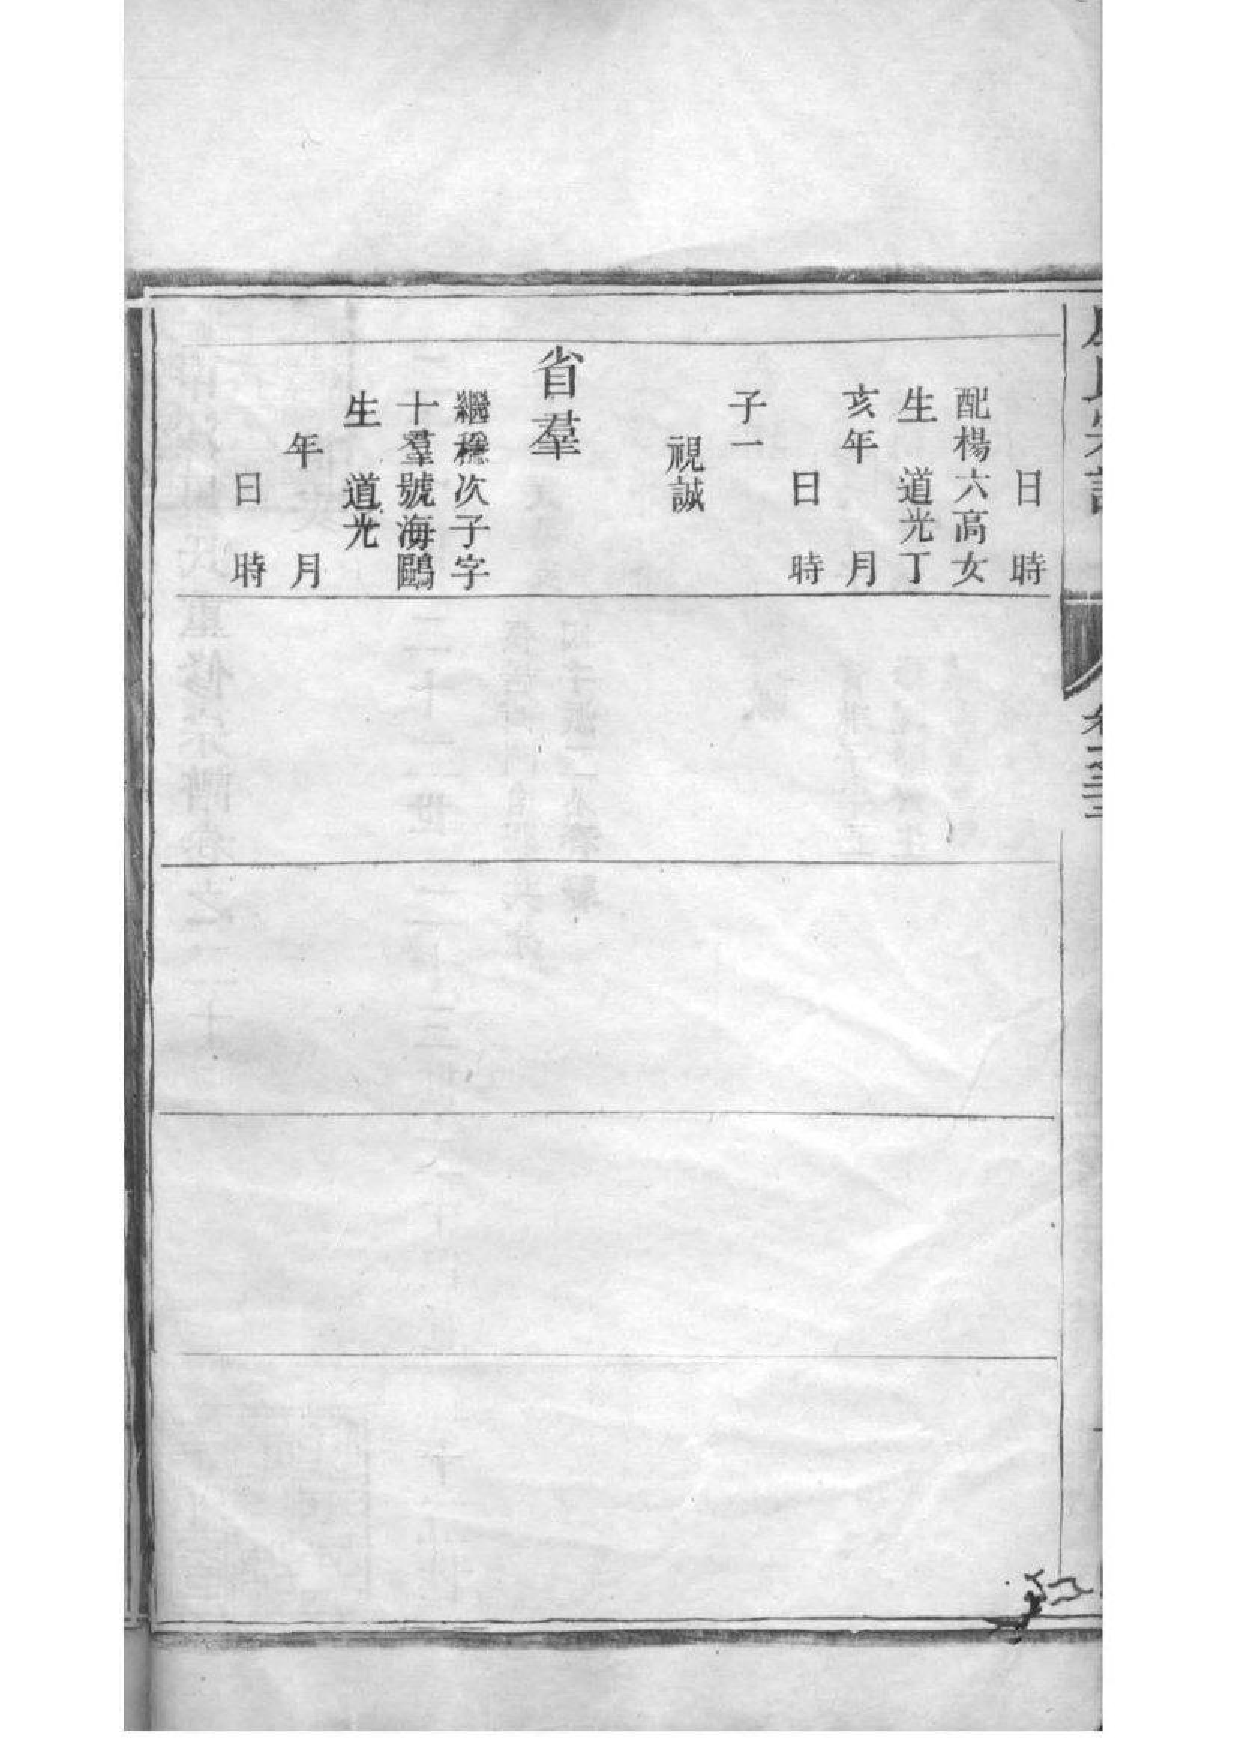 日 時
配楊六高女
生 道光丁
亥年 月
日 時
子一
視誠
省羣
繼穩次子字
十羣號海鷗
生 道光
年 月
日 時